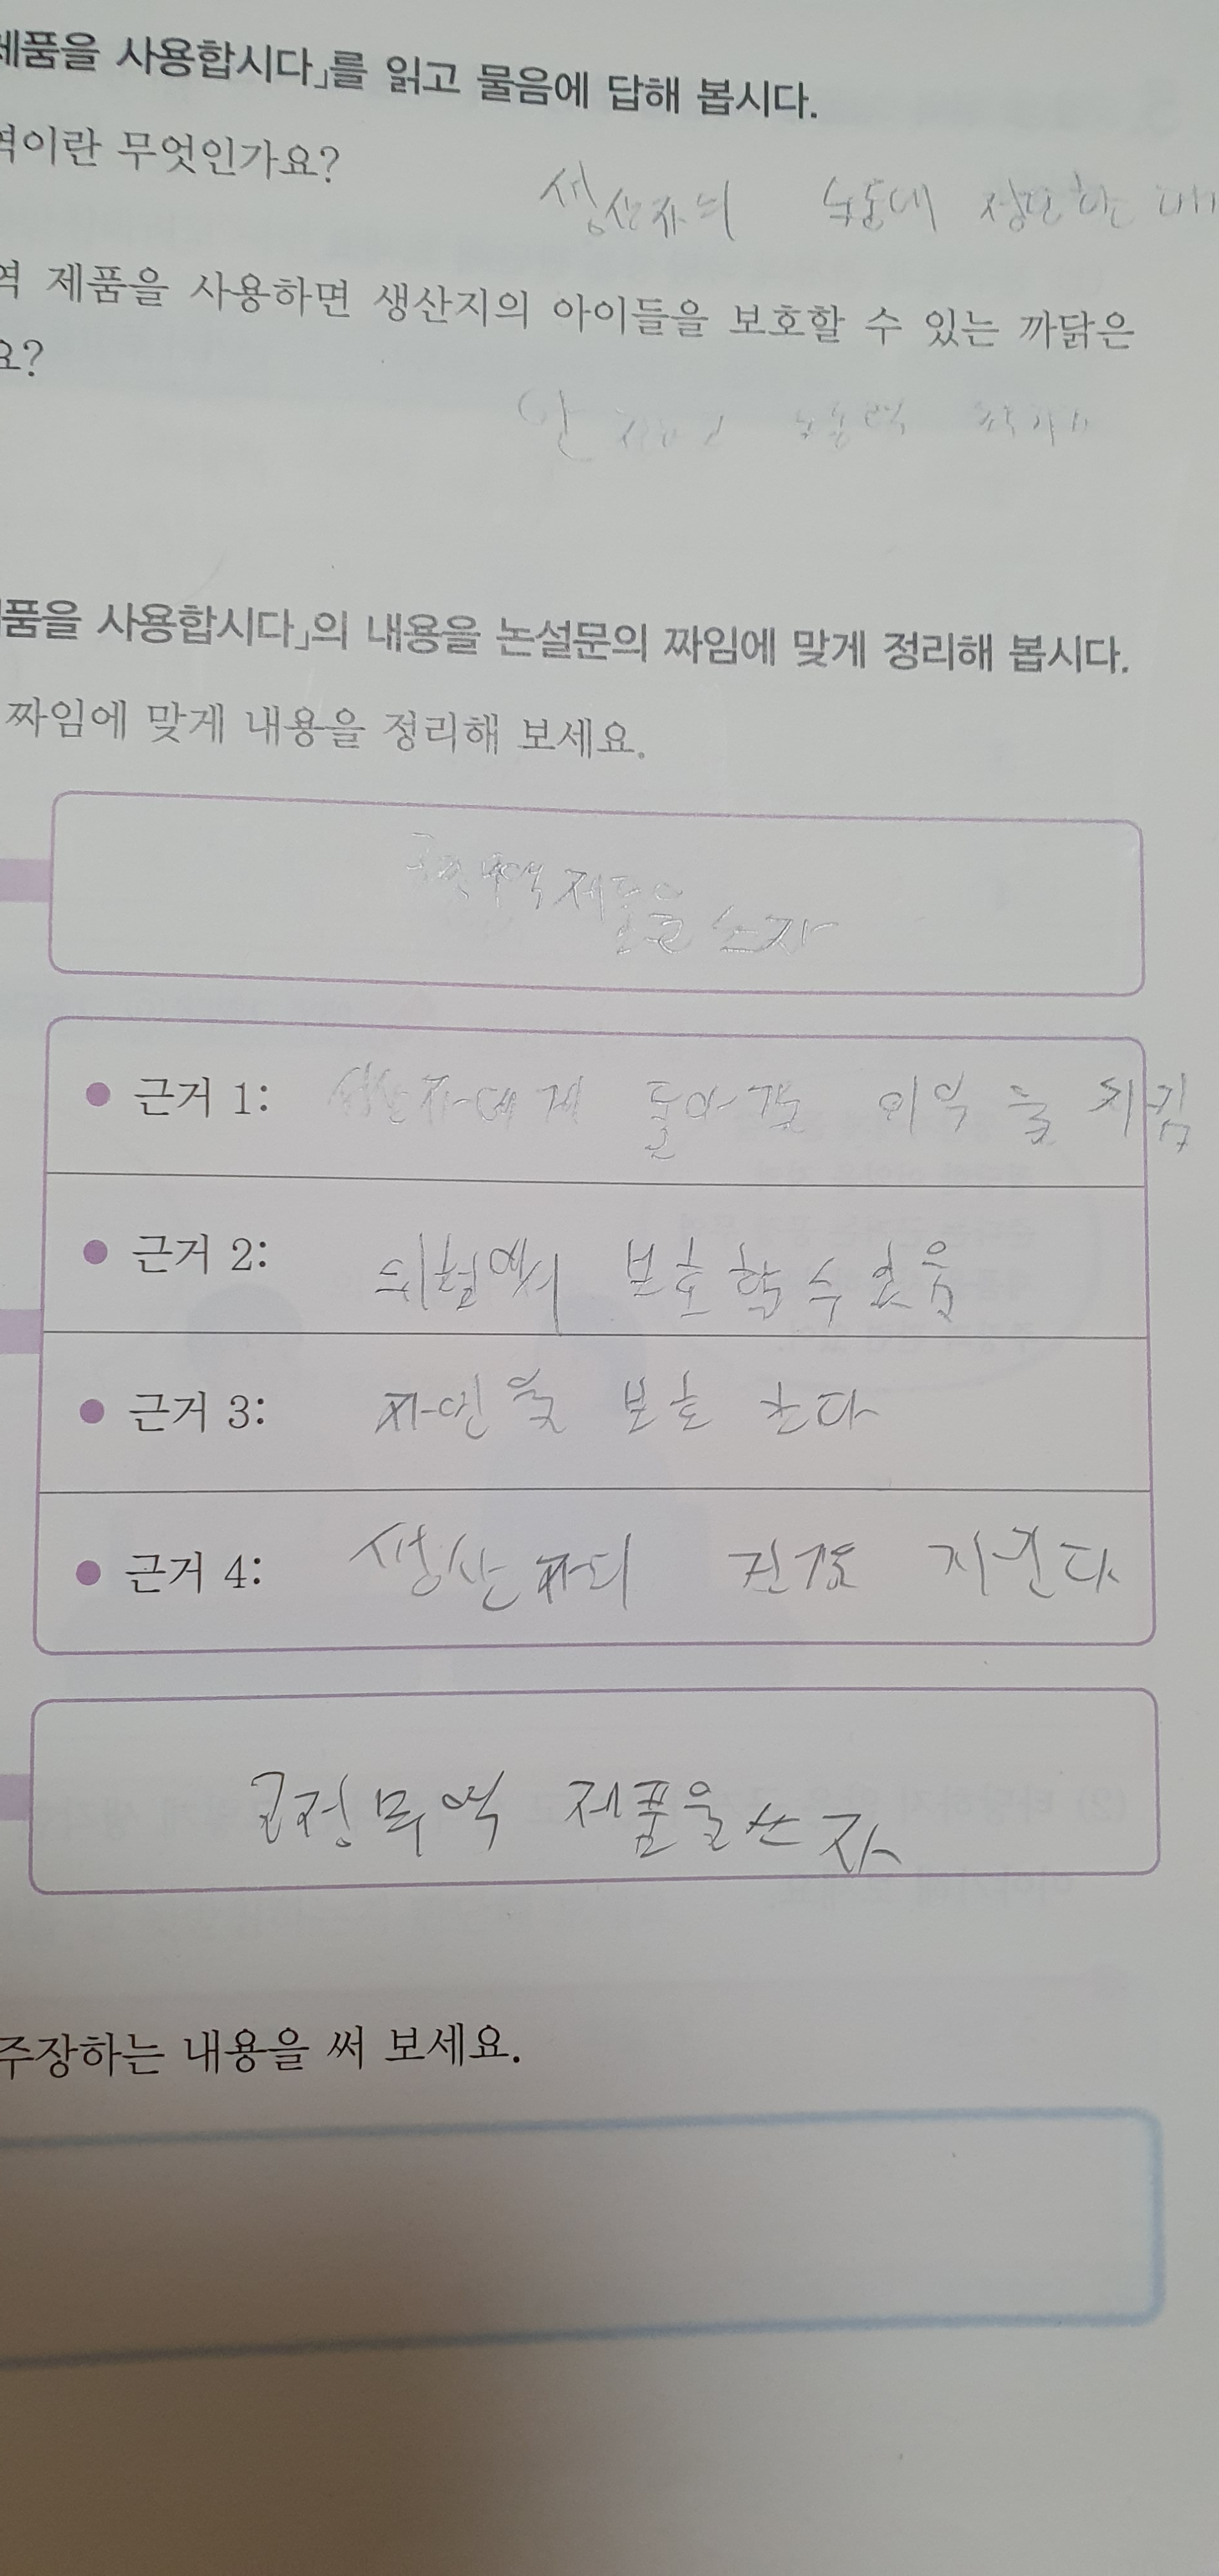 제품을 사용합시다」를 읽고 물음에 답해 봅시다.
역이란 무엇인가요?
생산자의 노동에 정당한
역 제품을 사용하면 생산지의 아이들을 보호할 수 있는 까닭은
요?
제품을 사용합시다」의 내용을 논설문의 짜임에 맞게 정리해 봅시다.
짜임에 맞게 내용을 정리해 보세요.
제품을 쓰자
근거 1: 생산자에게 돌아갈
근거 2: 위험에서 보호할 수
근거 3: 자연을 보호 한다
근거 4: 생산자의 건강 지킨다
공정무역 제품을 쓰자
주장하는 내용을 써 보세요.